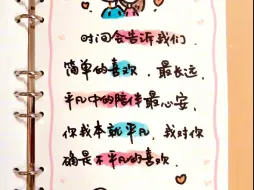 时间会告诉我们，
简单的喜欢，最长远，
平凡中的陪伴最心安，
你我本就平凡，我对你
确是不平凡的喜欢．